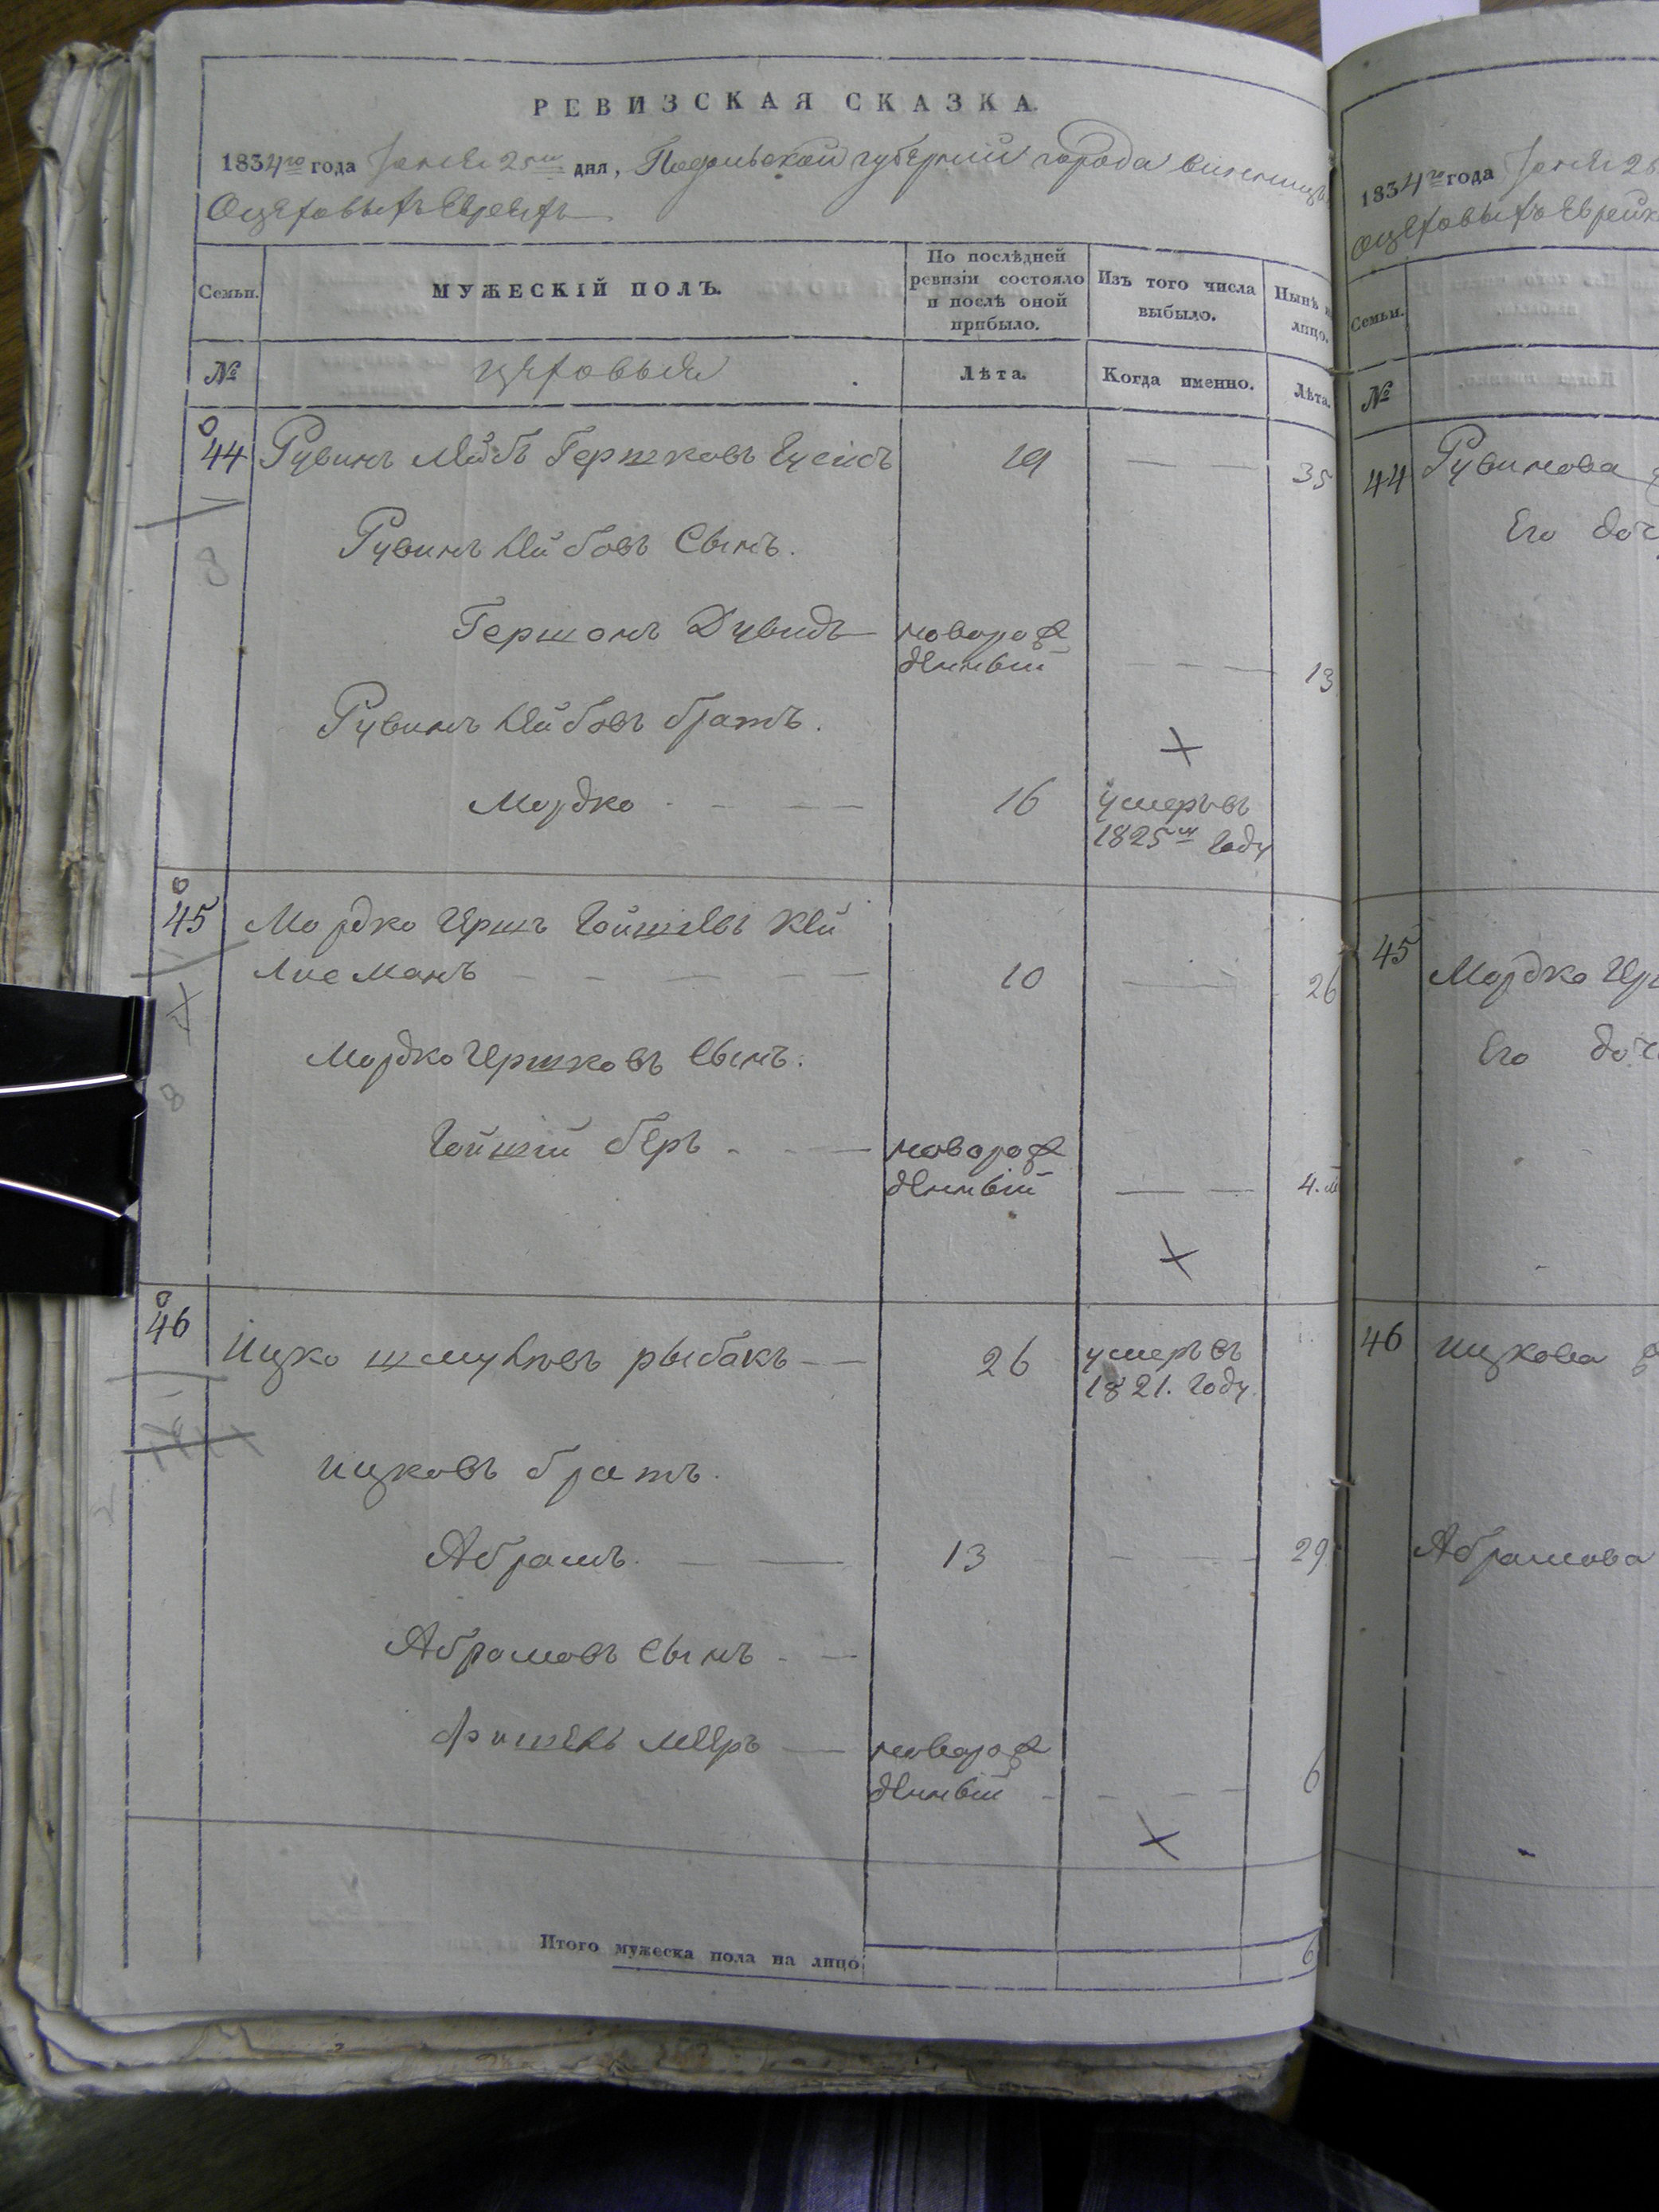 РЕВИЗСКАЯ СКАЗКА.
1834го года Іюня 25го дня, Подольской губерніи города Винницы
О цеховыхъ Евреяхъ
Семьи.
МУЖЕСКІЙ ПОЛЪ.
По послѣдней
ревизіи состояло
и послѣ оной
прибыло.
Изъ того числа
выбыло.
Нынѣ н
лицо.
№
цеховые
Лѣта.
Когда именно.
Лѣта.
44 Рувинъ Лейбъ Гершковъ 19 — — 35
8
Рувинъ Лейбовъ Сынъ.
Гершонъ Дувидъ — новорож
денный — — — 13
Рувинъ Лейбовъ братъ.
Мордко - — — — 16 умеръ въ
1825м Году
45 Мордко Герш Гойшіевъ Клей
Лисманъ — — — — — 10 — — 26
8
Мордко Гершковъ Сынъ.
Гойшій беръ - - — новорож
денный — — 4. м
46 Ицко шмулювъ рыбакъ — — 26 умеръ въ
1821. Году.
Ицковъ братъ.
Абрамъ. — — 13 — — — 29
Абрамовъ Сынъ - —
Фишель Мееръ — новорож
денный - — — — 6
Итого мужеска пола на лицо 6
1834го года Іюня 25
О цеховыхъ Еврейк
Семьи.
№
44 Рувинова
Его доч
45 Мордко Гер
Его доч
46 Ицкова
Абрамова